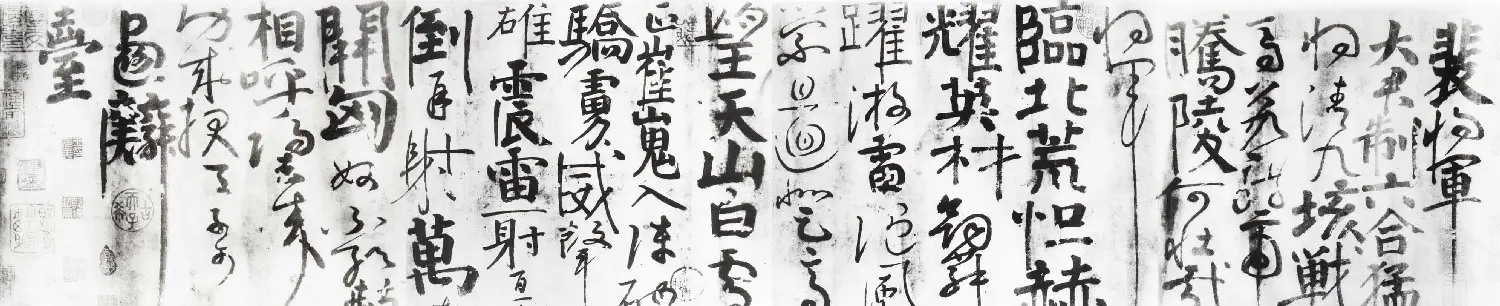 裴將軍
大君制六合猛
將清九垓戰
馬若龍虎
騰陵何壯哉
將軍
臨北荒烜赫
耀英材劍舞
躍游雷隨風
縈且迴登高
望天山白雪
正崔嵬入陣破
驕虜威聲
雄震雷一射百
倒再射萬
開匈奴不敢敵
相呼歸去來
功成報天子可
麟
臺